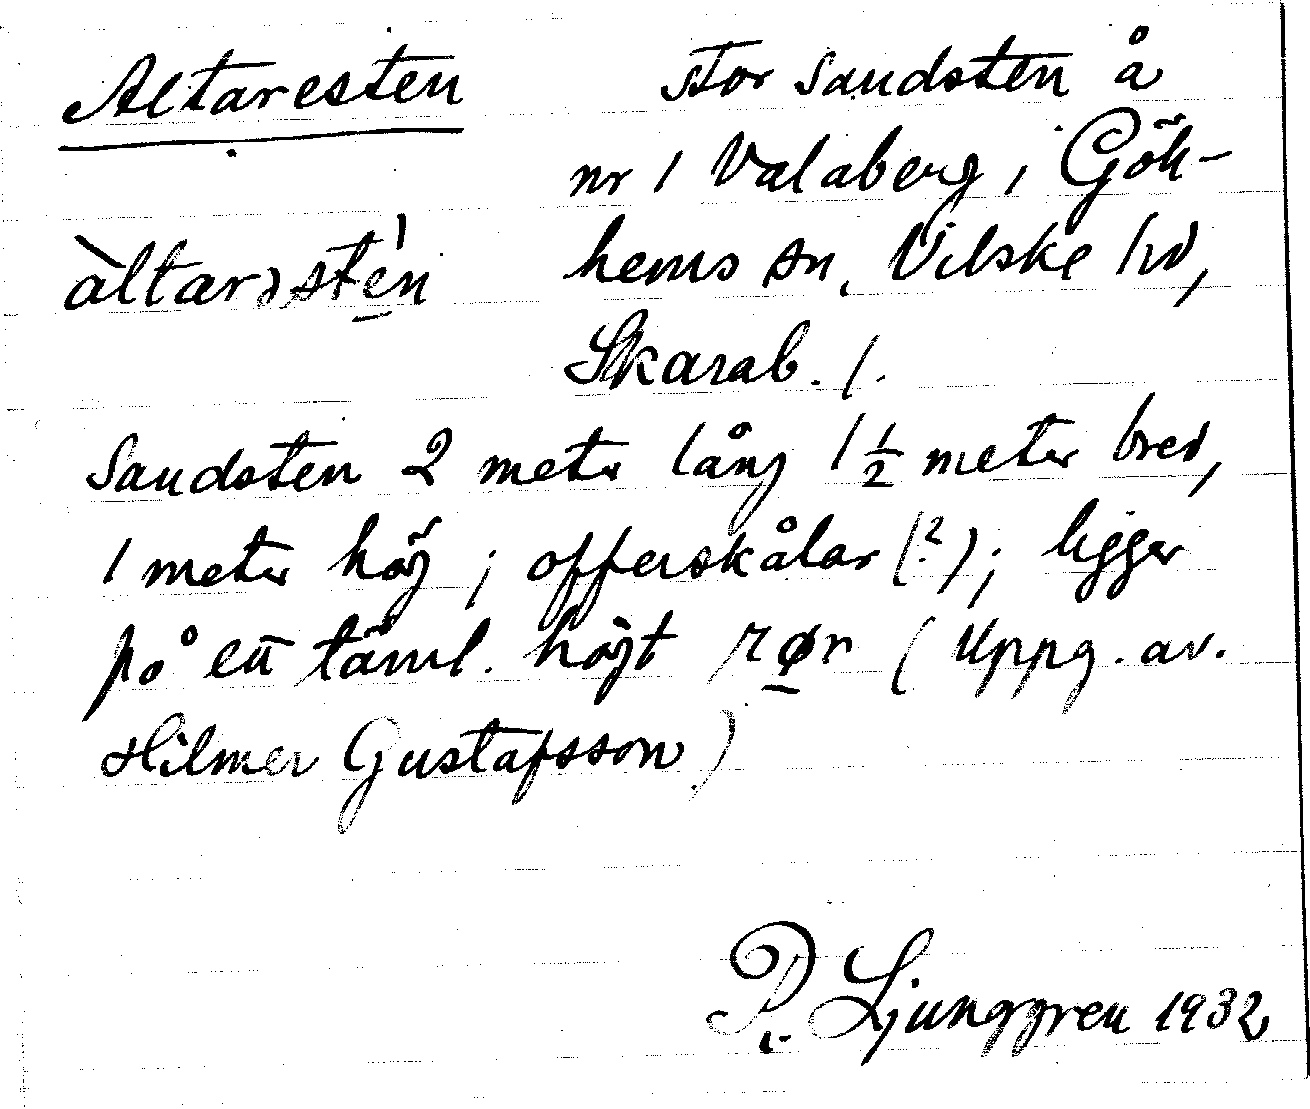 Altaresten
stor sandsten å
nr 1 Valaberg i Gök-
hems sn, Vilske hd,
Skarab. l.
àltarəstén
Sandsten 2 meter lång 1 ½ meter bred,
1 meter hög ; offerskålar (?); ligger
på ett täml. högt rør (Uppg. av.
Hilmer Gustafsson)
R. Ljunggren 1932